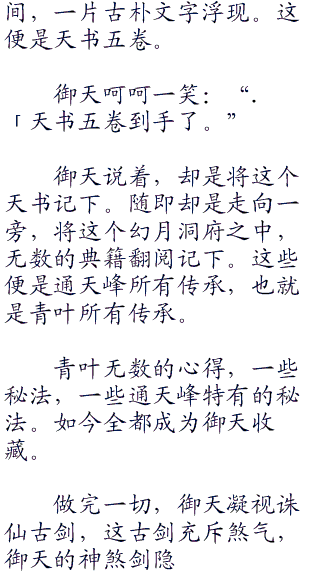 间，一片古朴文字浮现。这
便是天书五卷。
御天呵呵一笑：“.
「天书五卷到手了。”
御天说着，却是将这个
天书记下。随即却是走向一
旁，将这个幻月洞府之中，
无数的典籍翻阅记下。这些
便是通天峰所有传承，也就
是青叶所有传承。
青叶无数的心得，一些
秘法，一些通天峰特有的秘
法。如今全都成为御天收
藏。
做完一切，御天凝视诛
仙古剑，这古剑充斥煞气，
御天的神煞剑隐